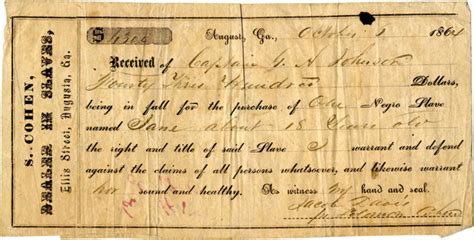 S. COHEN,
DEALER IN SLAVES,
Ellis Street, Augusta, Ga.
$ 1300
August, Ga., October 1 1864
Received of Captain G. A. Johnson
Hundred Dollars,
being in full for the purchase of One Negro Slave
named Jane about 18 Years old
the right and title of said Slave I warrant and defend
against the claims of all persons whatsoever, and likewise warrant
her sound and healthy. As witness my hand and seal.
Jacob Davis
Cohen